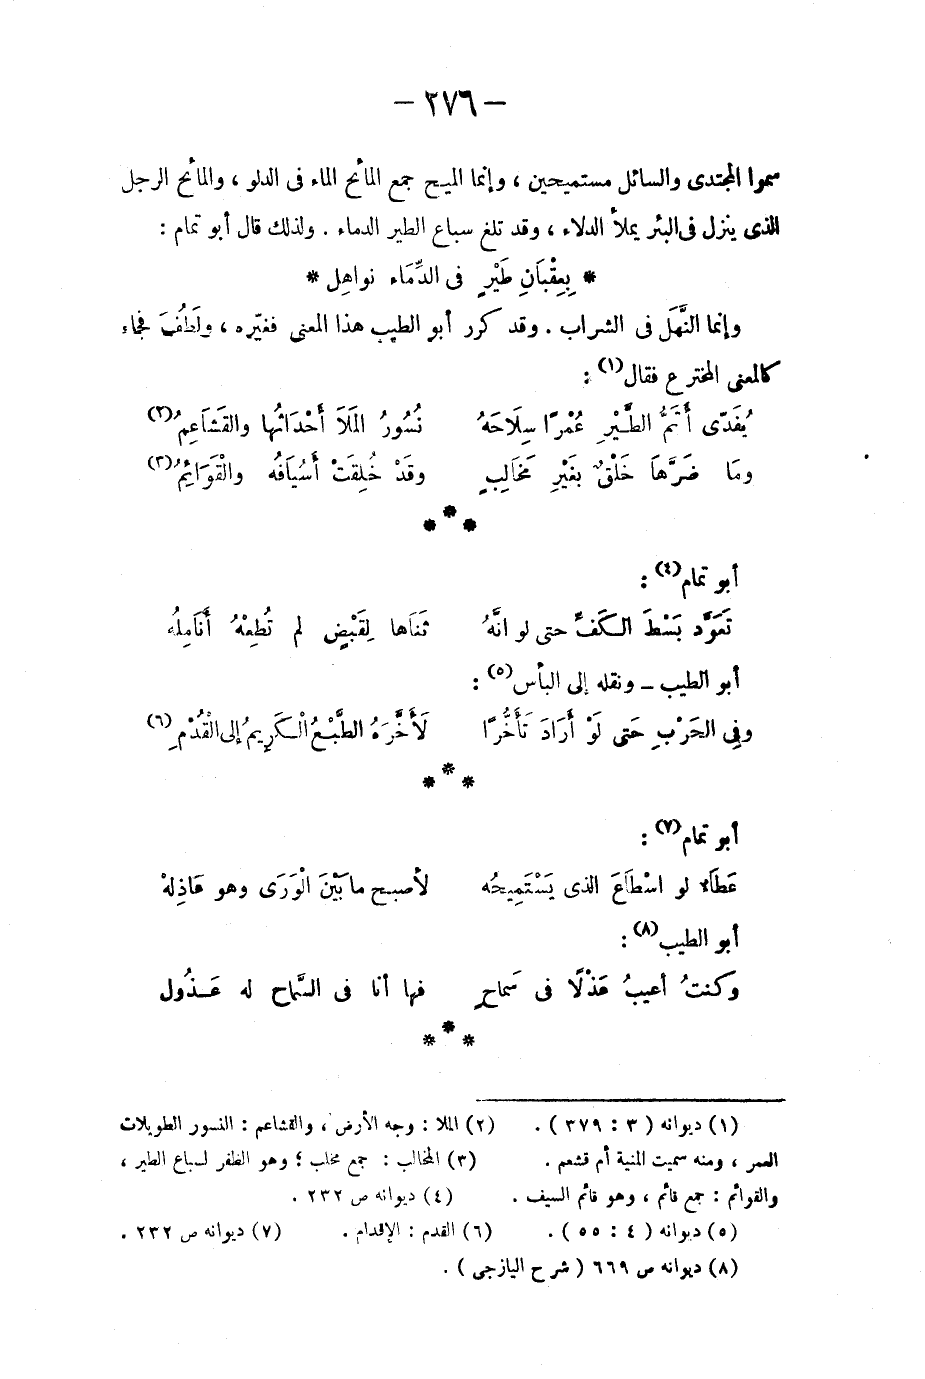 — ٢٧٦ —
سموا المجتدى والسائل مستميحين ، وإنما الميح جمع المائح الماء فى الدلو ، والمائح الرجل
الذى ينزل فى البئر يملأ الدلاء ، وقد تلغ سباع الطير الدماء . ولذلك قال أبو تمام :
* بِعِقْبَانِ طَيْرٍ فى الدِّمَاء نواهِل *
وإنما النَّهَل فى الشراب . وقد كرر أبو الطيب هذا المعنى فغيّره ، ولَطُفَ فجاء
كالمعنى المخترع فقال(١) :
يُفَدّى أَتَمُّ الطَّيْرِ عُمْرًا سِلَاحَهُ نُسُورُ المَلَا أَحْدَاثُها والقَشَاعِمُ(٢)
ومَا ضَرَّهَا خَلْقٌ بغَيْرِ مَخَالِبٍ وقَدْ خُلِقَتْ أَسْيَافُه والْقَوَائِمُ(٣)
* * *
أبو تمام(٤) :
تَعَوَّد بَسْطَ الكَفِّ حتى لو انَّهُ ثَنَاها لِقَبْضٍ لم تُطِعْهُ أَنَامِلُه
أبو الطيب ــ ونقله إلى البأس(٥) :
وفِى الحَرْبِ حَتى لَوْ أَرَادَ تَأَخُّرًا لَأَخَّرَهُ الطَّبْعُ الْكَرِيمُ إلى الْقُدْمِ(٦)
* * *
أبو تمام(٧) :
عَطَاء لو اسْطَاعَ الذى يَسْتَمِيحُه لأصبح ما بَيْنَ الْوَرَى وهو عَاذِلهْ
أبو الطيب(٨) :
وكنتُ أعيبُ عَذْلًا فى سَماحٍ فها أنا فى السَّماح له عَذُول
* * *
(١) ديوانه ( ٣ : ٣٧٩ ) . (٢) الملا : وجه الأرض ، والقشاعم : النسور الطويلات
العمر ، ومنه سميت المنية أم قشعم . (٣) المخالب : جمع مخلب ؛ وهو الظفر لسباع الطير ،
والقوائم : جمع قائم ، وهو قائم السيف . (٤) ديوانه ص ٢٣٢ .
(٥) ديوانه ( ٤ : ٥٥ ) . (٦) القدم : الإقدام . (٧) ديوانه ص ٢٣٢ .
(٨) ديوانه ص ٦٦٩ ( شرح اليازجى ) .